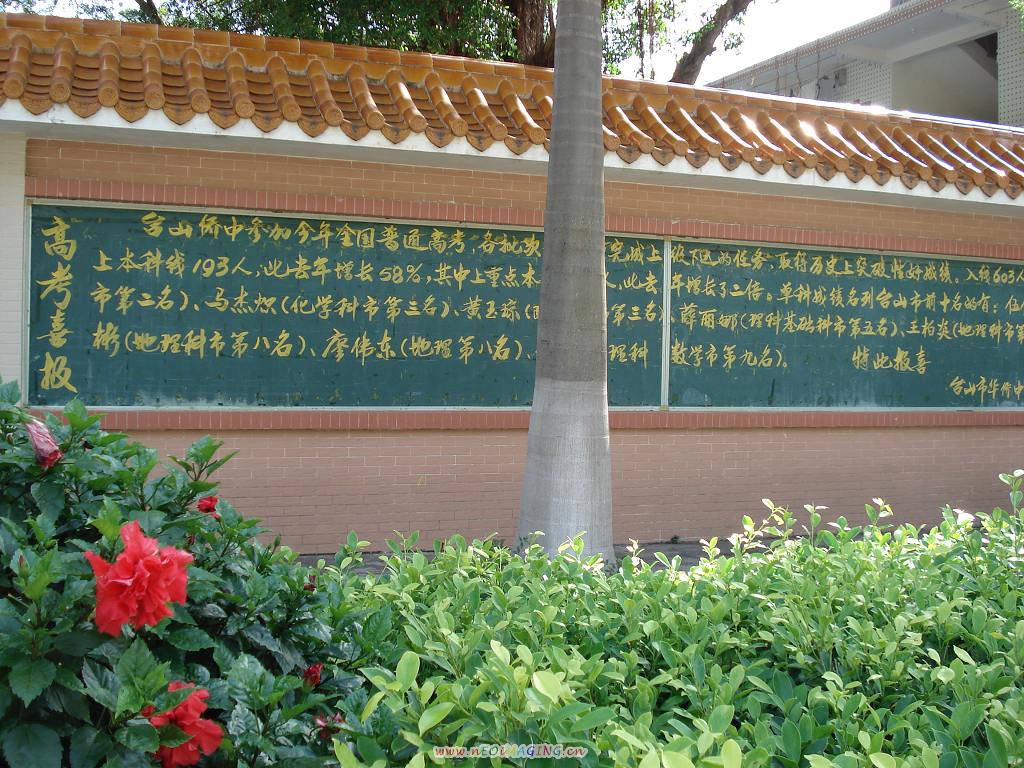 高考喜报
台山侨中参加今年全国普通高考,各批次 完成上级下达的任务,取得历史上突破性好成绩。入稱603人
上本科线193人,此去年增长58%,其中上重点本 人,此去年增长了二倍。单科成绩名列台山市前十名的有:伍
市第二名)、马杰炽(化学科市第三名)、黄玉琼( 第三名)、薛丽娜(理科基础科市第五名)、王柏炎(地理科市第
彬(地理科市第八名)、廖伟东(地理第八名)、 理科数学市第九名)。 特此报喜
台山市华侨中
www.nEOiMAGING.cn